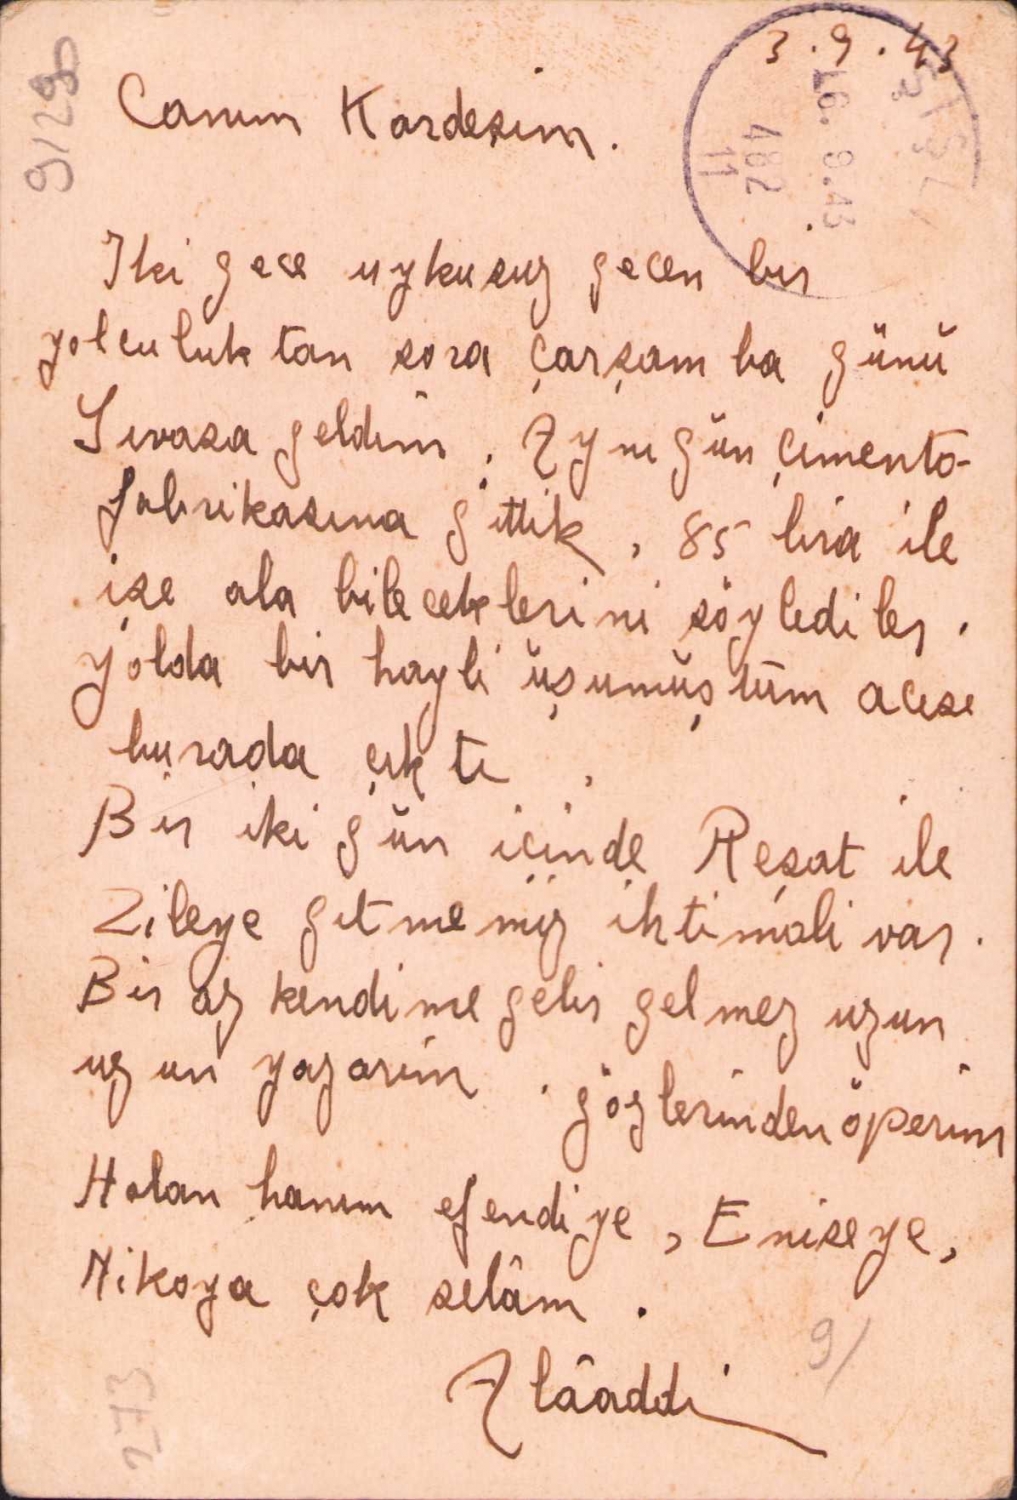 3.9.43
ŞİŞLİ
16.9.43
482
11
9/29
Canım Kardeşim.
İki gece uykusuz geçen bir
yolculuktan sora çarşamba günü
Sıvasa geldim. Aynı gün çimento
fabrikasına gittik, 85 lira ile
işe ala bileceklerini söylediler.
yolda bir hayli üşümüştüm acısı
burada çıktı.
Bir iki gün içinde Reşat ile
Zileye gitmemiz ihtimali var.
Bir az kendime gelir gelmez uzun
uzun yazarım. gözlerinden öperim
Holan hanım efendiye, Eniseye,
Nikoya çok selâm.
Alâaddi
9/
273